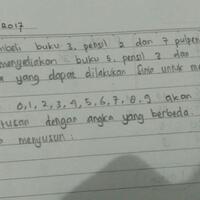 2017
mbeli buku 3, pensil 2 dan 7 pulpen
menyediakan buku 5, pensil 3 dan
yang dapat dilakukan Sinta untuk me
0,1,2,3,4,5,6,7,8,9 akan
tusan dengan angka yang berbeda.
menyusun :